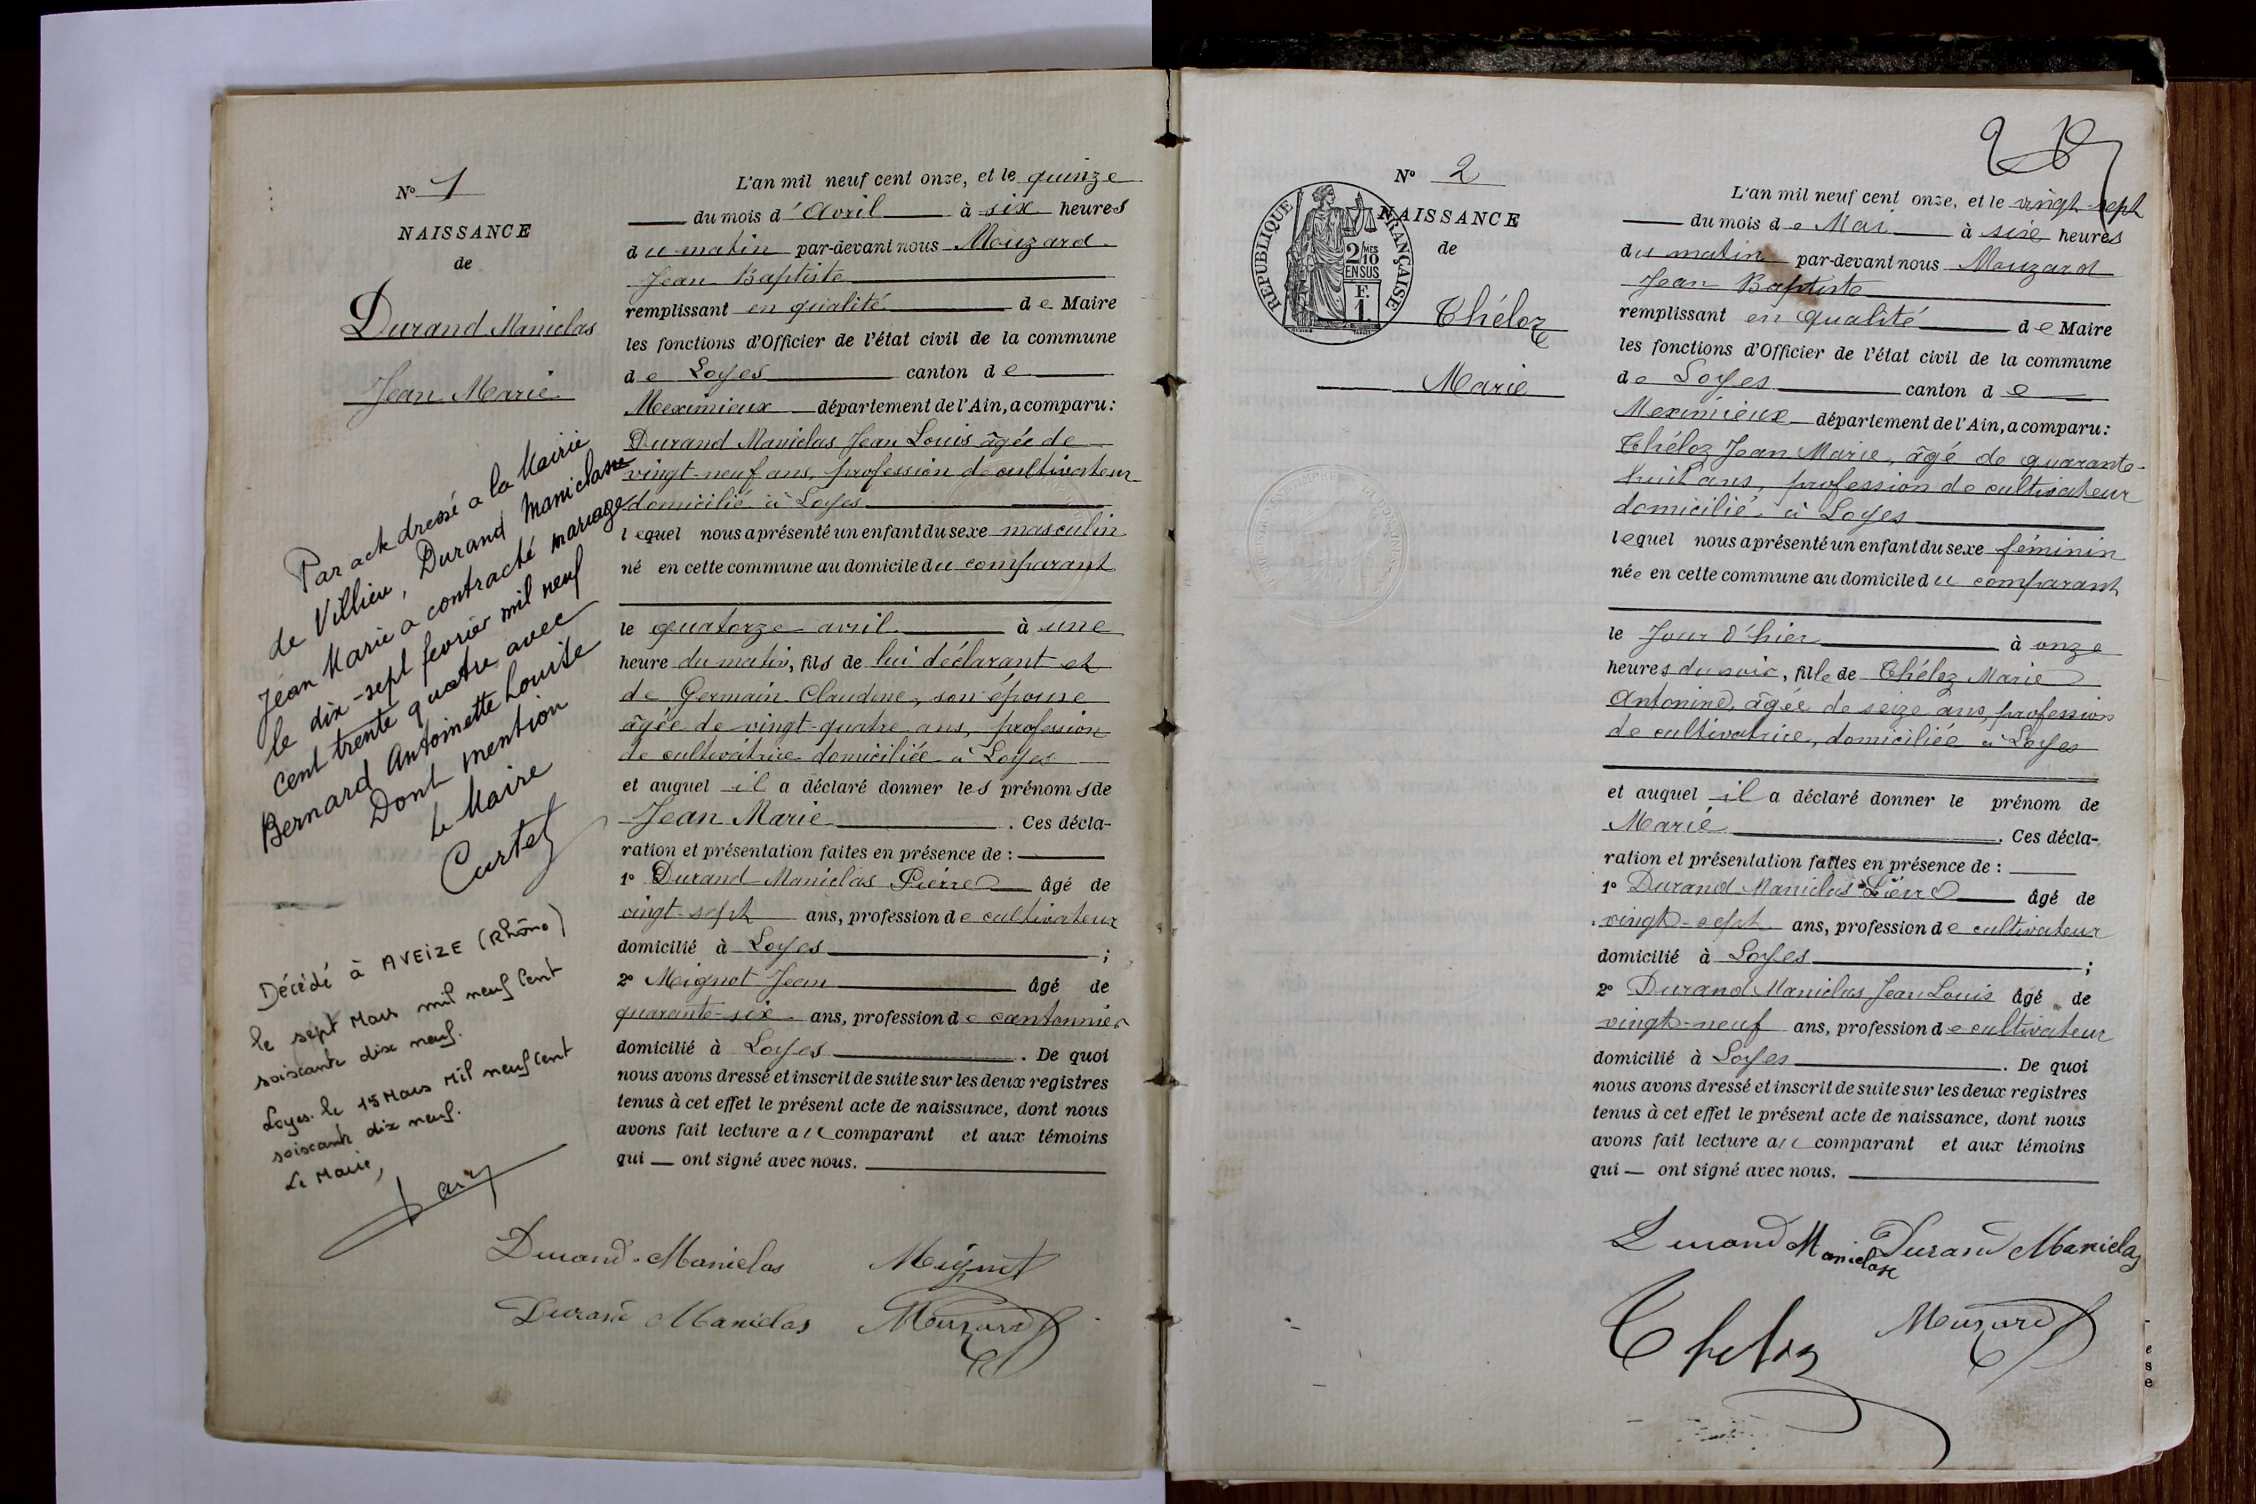 N° 1
NAISSANCE
de
Durand Maniclas
Jean Marie
Par acte dressé a la Mairie
de Villieu, Durand Maniclasse
Jean Marie a contracté mariage
le dix-sept fevrier mil neuf
cent trente quatre avec
Bernard Antoinette Louise
Dont mention
Le Maire
Curtet
Décédé à AVEIZE (Rhône)
le sept Mars mil neuf cent
soixante dix neuf.
Loyes. le 15 Mars Mil neuf cent
soixante dix neuf.
Le Maire,
L'an mil neuf cent onze, et le quinze
du mois d'Avril à six heures
du matin par-devant nous Mouzard
Jean Baptiste
remplissant en qualité de Maire
les fonctions d'Officier de l'état civil de la commune
de Loyes canton de
Meximieux département de l'Ain, a comparu:
Durand Maniclas Jean Louis âgée de
vingt-neuf ans, profession de cultivateur
domicilié à Loyes
lequel nous a présenté un enfant du sexe masculin
né en cette commune au domicile du comparant
le quatorze avril à une
heure du matin, fils de lui déclarant et
de Germain Claudine, son épouse
âgée de vingt-quatre ans, profession
de cultivatrice domiciliée à Loyes
et auquel il a déclaré donner les prénoms de
Jean Marie. Ces décla-
ration et présentation faites en présence de :
1° Durand Maniclas Pierre âgé de
vingt-sept ans, profession de cultivateur
domicilié à Loyes ;
2° Mignot Jean âgé de
quarante-six ans, profession de cantonnier
domicilié à Loyes. De quoi
nous avons dressé et inscrit de suite sur les deux registres
tenus à cet effet le présent acte de naissance, dont nous
avons fait lecture au comparant et aux témoins
qui — ont signé avec nous.
Durand-Maniclas Mignot
Durand Maniclas Mouzard
N° 2
NAISSANCE
de
REPUBLIQUE FRANÇAISE
2/10 MES
EN SUS
F.
1.
Théloz
Marie
L'an mil neuf cent onze, et le vingt-sept
du mois de Mai à six heures
du matin par-devant nous Mouzard
Jean Baptiste
remplissant en qualité de Maire
les fonctions d'Officier de l'état civil de la commune
de Loyes canton de
Meximieux département de l'Ain, a comparu:
Théloz Jean Marie, âgé de quarante-
huit ans, profession de cultivateur
domicilié à Loyes
lequel nous a présenté un enfant du sexe féminin
née en cette commune au domicile du comparant
le Jour d'hier à onze
heures du soir, fille de Théloz Marie
Antonine, âgée de seize ans, profession
de cultivatrice, domiciliée à Loyes
et auquel il a déclaré donner le prénom de
Marie. Ces décla-
ration et présentation faites en présence de :
1° Durand Maniclas Pierre âgé de
vingt-sept ans, profession de cultivateur
domicilié à Loyes ;
2° Durand Maniclas Jean Louis âgé de
vingt-neuf ans, profession de cultivateur
domicilié à Loyes. De quoi
nous avons dressé et inscrit de suite sur les deux registres
tenus à cet effet le présent acte de naissance, dont nous
avons fait lecture au comparant et aux témoins
qui — ont signé avec nous.
Durand Maniclasse Durand Maniclas
Theloz Mouzard